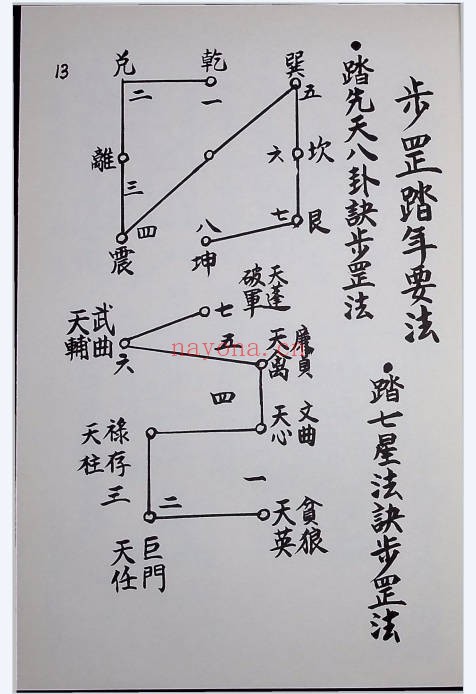 步罡踏年要法
•踏先天八卦訣步罡法
•踏七星法訣步罡法
13
乾
一
兌
二
離
三
震
四
巽
五
坎
六
艮
七
坤
八
天蓬
破軍
七
武曲
天輔
六
廉貞
天离
五
文曲
天心
四
祿存
天柱
三
巨門
天任
二
貪狼
天英
一
nayona.cn